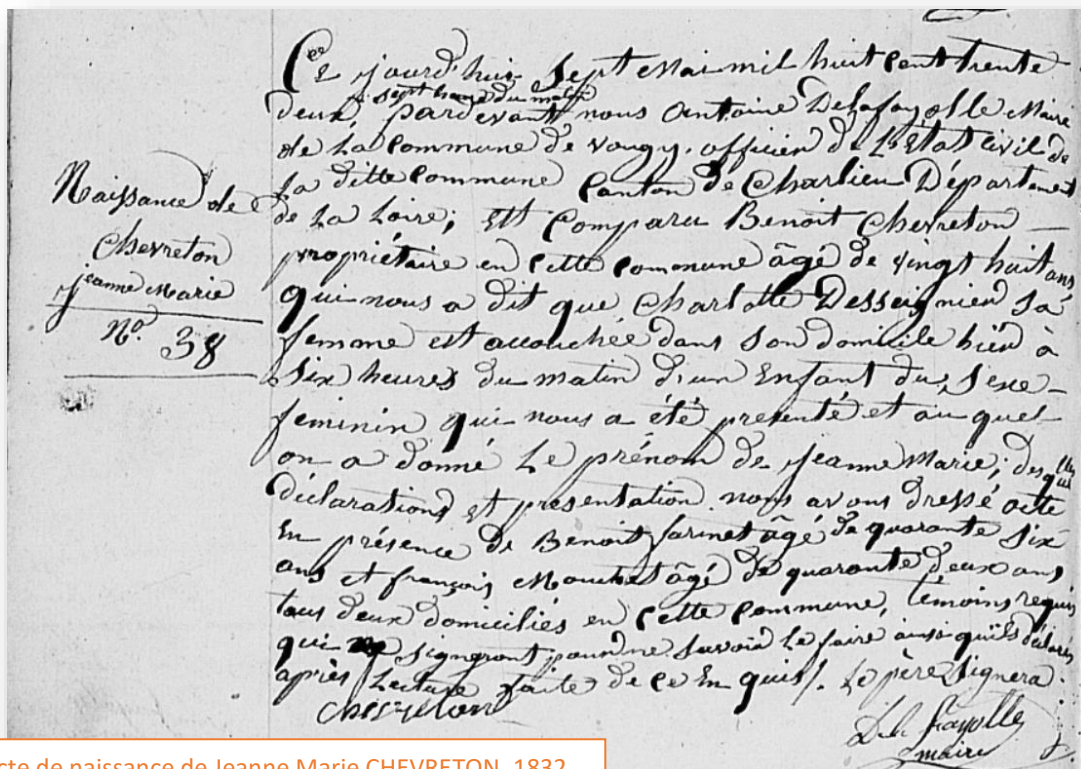 Naissance de
Chevreton
jeanne Marie
N.º 38
Ce jourd'hui Sept Mai mil huit Cent trente
à sept heures du matin
deux, pardevant nous Antoine Delafayolle Maire
de La Commune de Vougy, officier de L'Etat Civil de
la ditte Commune Canton de Charlieu Département
de La Loire; Est Comparu Benoit Chevreton
propriétaire en Cette Commune âgé de vingt huit ans
qui nous a dit que Charlotte Desseignieu Sa
femme est accouchée dans Son domicile hier à
Six heures du matin d'un Enfant du Sexe
feminin qui nous a été presenté et au quel
on a donné Le prénom de Jeanne Marie; desquelles
déclarations et présentation nous avons dressé acte
En présence de Benoit farinet âgé de quarante Six
ans et françois Mouchet âgé de quarante deux ans
tous deux domiciliés en Cette Commune, témoins requis
qui signeront pour ne Savoir Le faire ainsi qu'ils déclarés
après Lecture faite de ce En quis/. Le père Signera.
Chevreton
Delafayolle
maire
acte de naissance de Jeanne Marie CHEVRETON, 1832